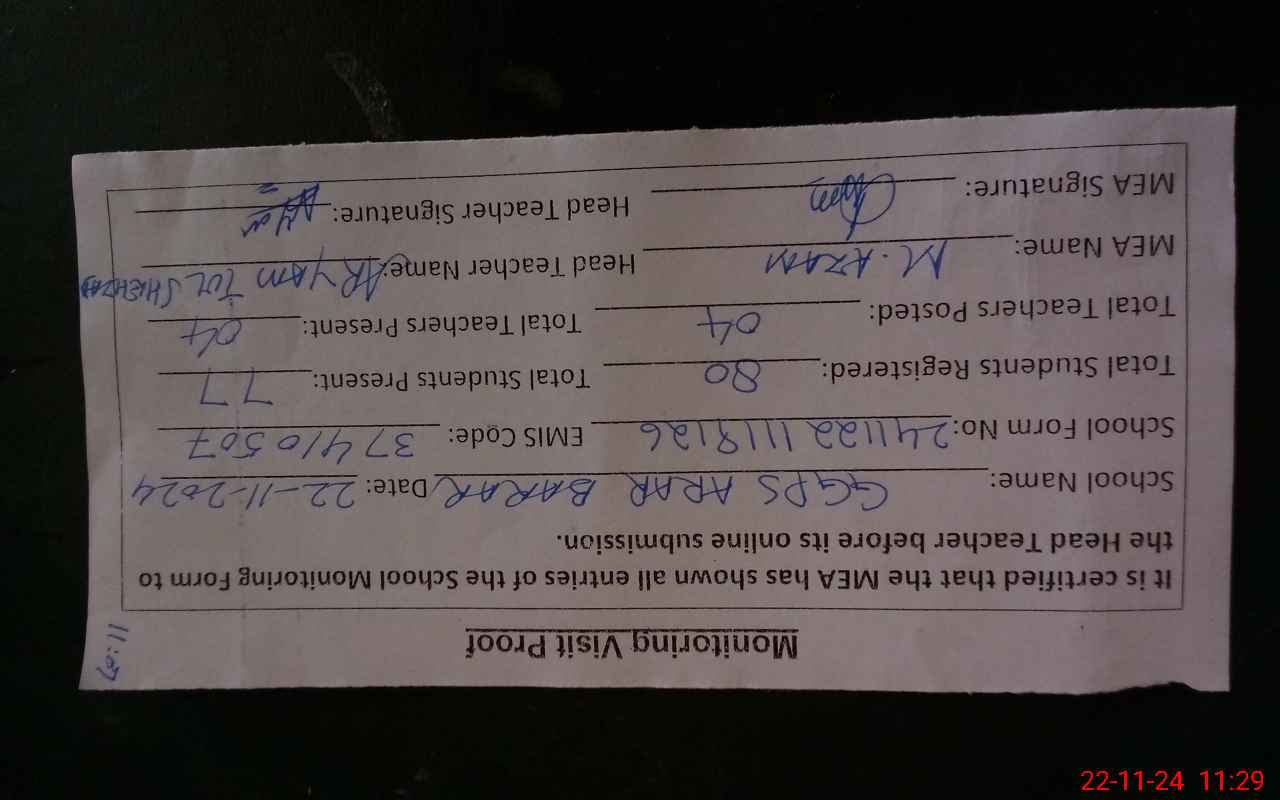 Monitoring Visit Proof
11:07
It is certified that the MEA has shown all entries of the School Monitoring Form to
the Head Teacher before its online submission.
School Name: GGPS ARAR BARAR Date: 22-11-2024
School Form No: 2411221118126 EMIS Code: 37410507
Total Students Registered: 80 Total Students Present: 77
Total Teachers Posted: 04 Total Teachers Present: 04
MEA Name: M. AZAM Head Teacher Name: ARYAM TUL SHEHZADI
MEA Signature: Head Teacher Signature:
22-11-24 11:29